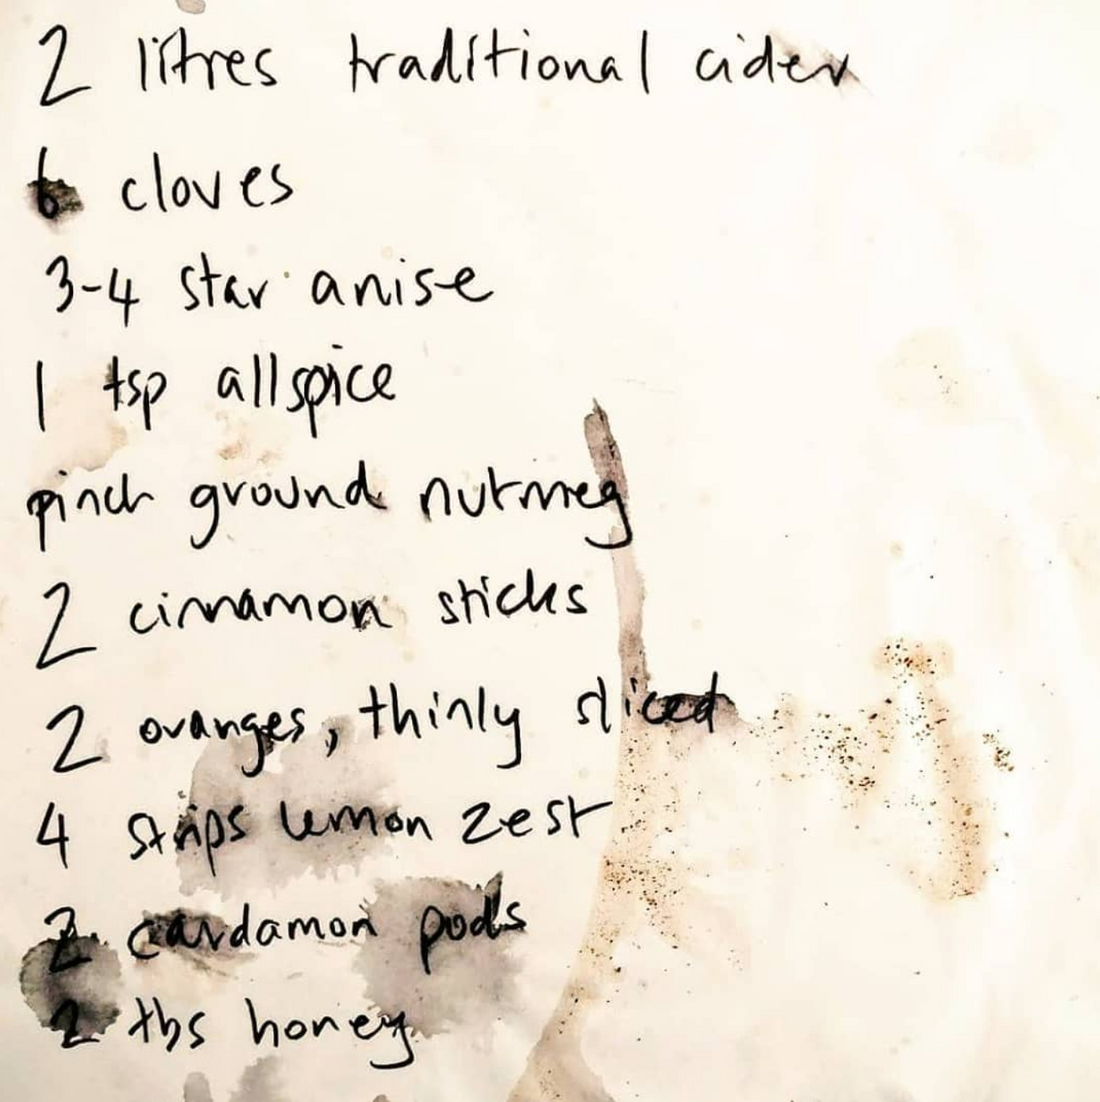 2 litres traditional cider
6 cloves
3-4 star anise
1 tsp allspice
pinch ground nutmeg
2 cinnamon sticks
2 oranges, thinly sliced
4 strips lemon zest
2 cardamon pods
2 tbs honey